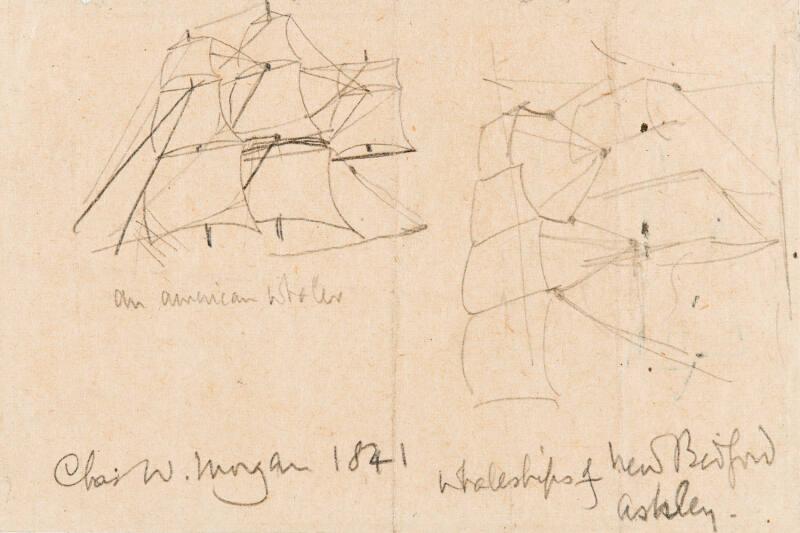 an american whaler
Chas W. Morgan 1841
whaleships of New Bedford
Ashley.